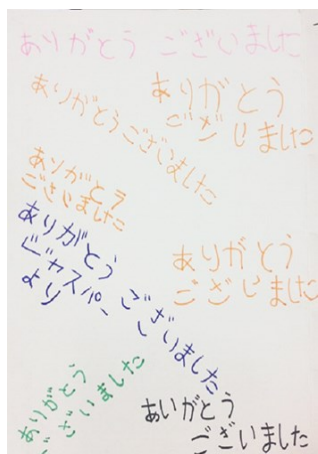 ありがとう ございました
ありがとうございました
ありがとう
ござじました
ありがとう
ございました
ありがとう ございました
ビャスパ、より
ありがとう
ござじました
ありがとう
ございました
あいがとう
ございました